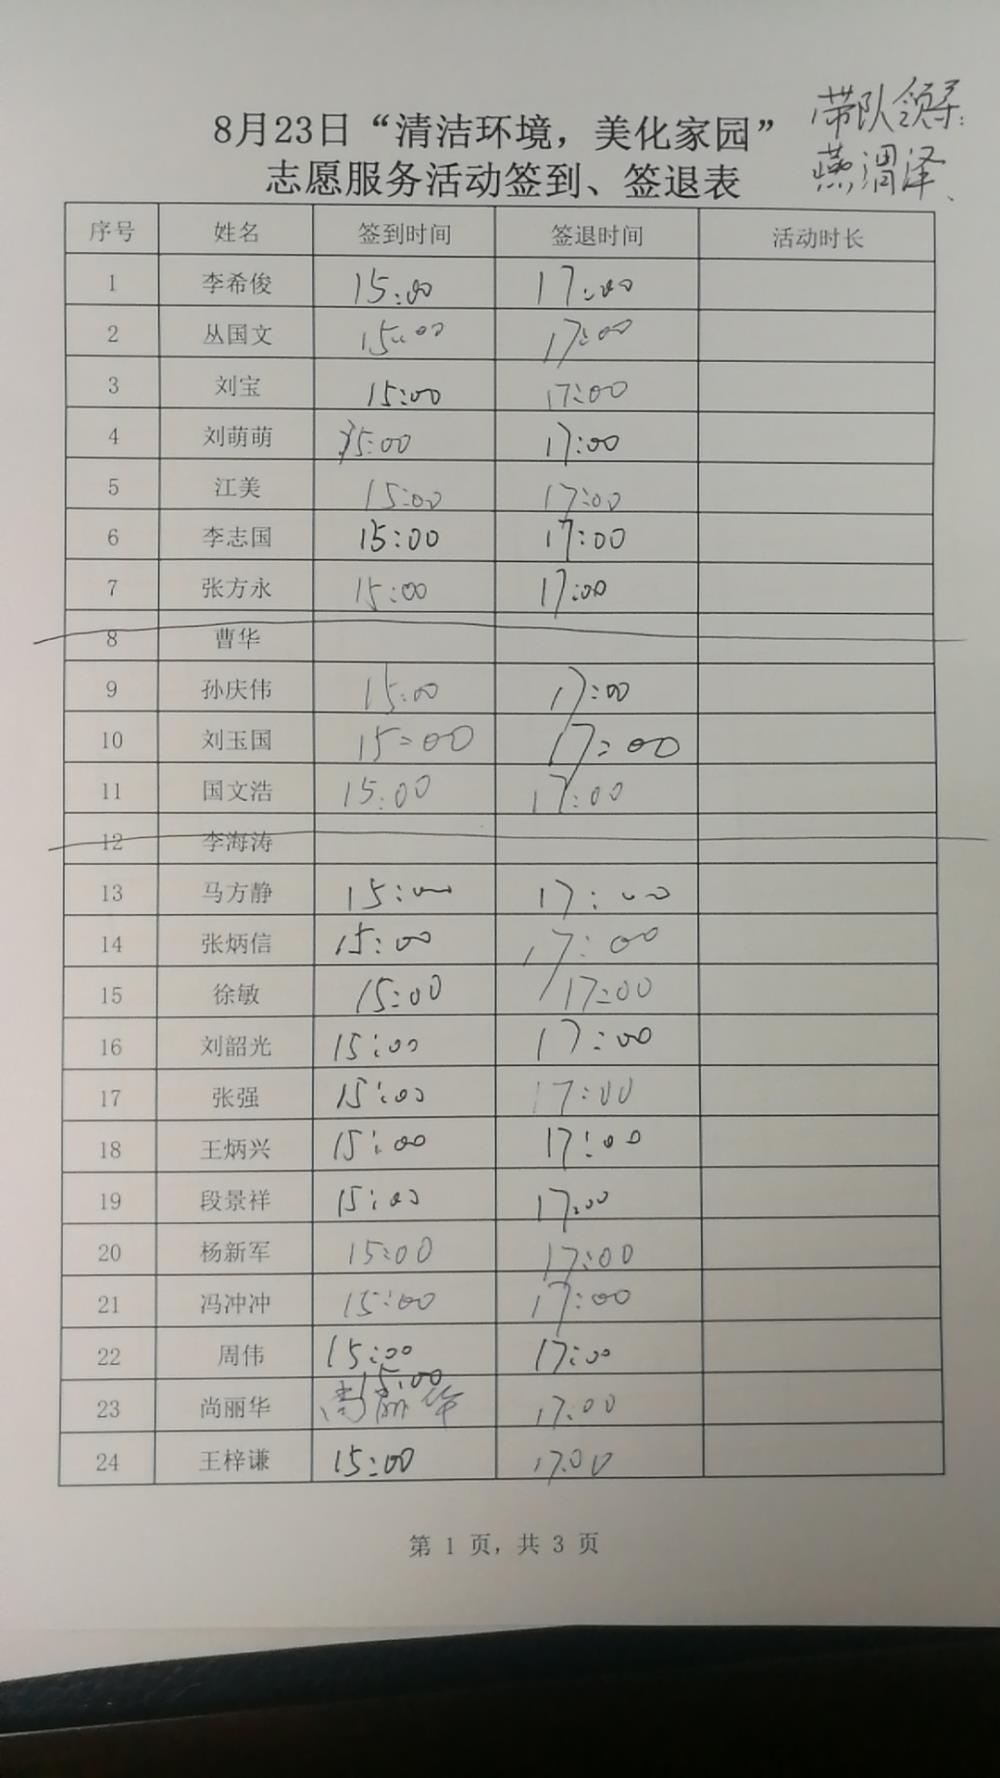 8月23日“清洁环境，美化家园”
志愿服务活动签到、签退表
带队领导：
燕润泽、
序号 姓名 签到时间 签退时间 活动时长
1 李希俊 15:00 17:00
2 丛国文 15:00 17:00
3 刘宝 15:00 17:00
4 刘萌萌 15:00 17:00
5 江美 15:00 17:00
6 李志国 15:00 17:00
7 张方永 15:00 17:00
8 曹华
9 孙庆伟 15:00 17:00
10 刘玉国 15:00 17:00
11 国文浩 15:00 17:00
12 李海涛
13 马方静 15:00 17:00
14 张炳信 15:00 17:00
15 徐敏 15:00 17:00
16 刘韶光 15:00 17:00
17 张强 15:00 17:00
18 王炳兴 15:00 17:00
19 段景祥 15:00 17:00
20 杨新军 15:00 17:00
21 冯冲冲 15:00 17:00
22 周伟 15:00 17:00
23 尚丽华 15:00 尚丽华 17:00
24 王梓谦 15:00 17:00
第 1 页，共 3 页